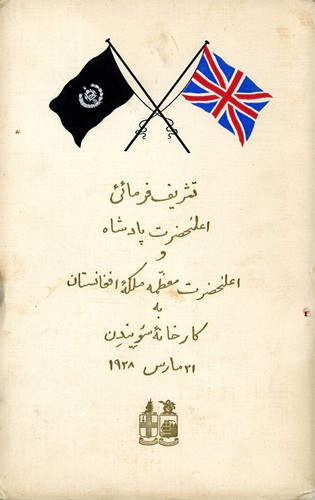 تشریف فرمائیٔ
اعلیٰحضرت پادشاه
و
اعلیٰحضرت معظّمه ملکهٔ افغانستان
به
کارخانهٔ سُویندِن
۲۱ مارس ۱۹۲۸